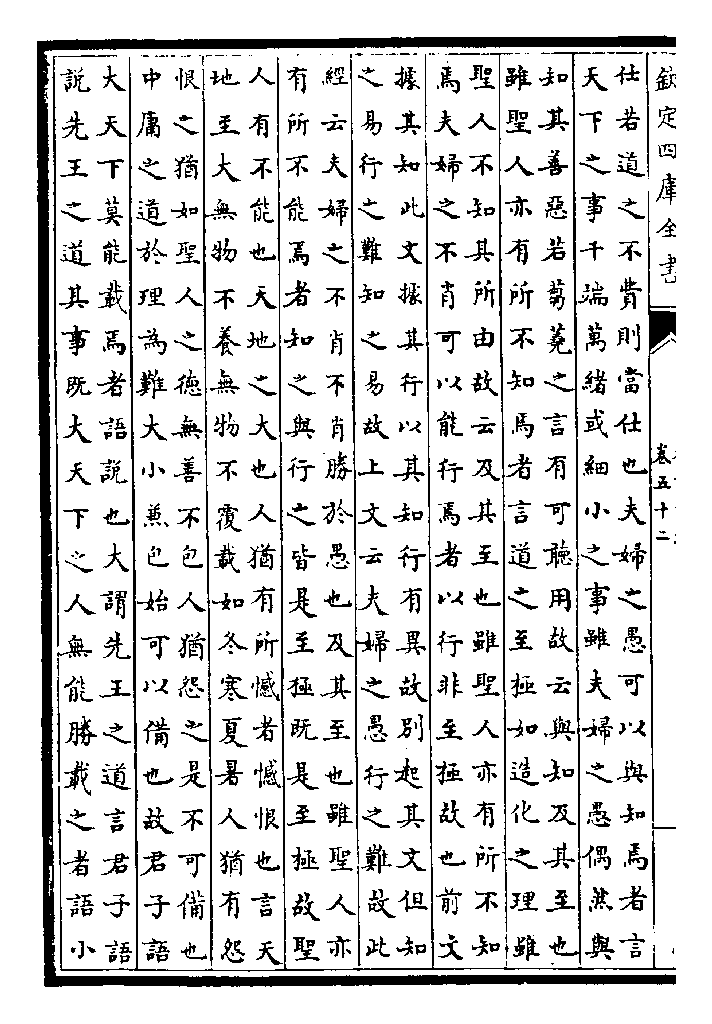 欽定四庫全書
卷五十二
仕若道之不費則當仕也夫婦之愚可以與知焉者言
天下之事千端萬緒或細小之事雖夫婦之愚偶然與
知其善惡若芻蕘之言有可聽用故云與知及其至也
雖聖人亦有所不知焉者言道之至極如造化之理雖
聖人不知其所由故云及其至也雖聖人亦有所不知
焉夫婦之不肖可以能行焉者以行非至極故也前文
據其知此文據其行以其知行有異故別起其文但知
之易行之難知之易故上文云夫婦之愚行之難故此
經云夫婦之不肖不肖勝於愚也及其至也雖聖人亦
有所不能焉者知之與行之皆是至極既是至極故聖
人有不能也天地之大也人猶有所憾者憾恨也言天
地至大無物不養無物不覆載如冬寒夏暑人猶有怨
恨之猶如聖人之德無善不包人猶怨之是不可備也
中庸之道於理為難大小兼包始可以備也故君子語
大天下莫能載焉者語說也大謂先王之道言君子語
說先王之道其事既大天下之人無能勝載之者語小